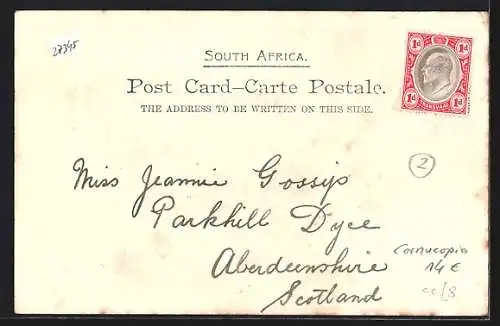 27345
SOUTH AFRICA.
Post Card–Carte Postale.
THE ADDRESS TO BE WRITTEN ON THIS SIDE.
1d 1d
TRANSVAAL
1d 1d
2
Miss Jeannie Gossip
Parkhill Dyce
Aberdeenshire
Scotland
Cornucopia
14 €